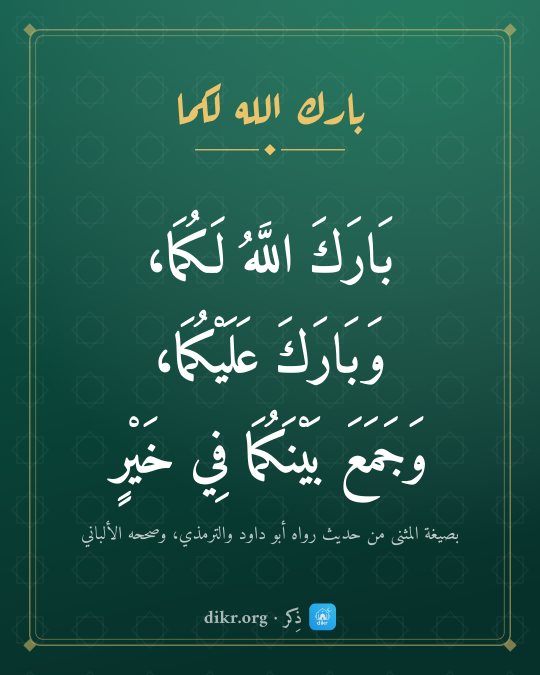 بارك الله لكما
بَارَكَ اللَّهُ لَكُمَا،
وَبَارَكَ عَلَيْكُمَا،
وَجَمَعَ بَيْنَكُمَا فِي خَيْرٍ
بصيغة المثنى من حديث رواه أبو داود والترمذي، وصححه الألباني
ذِكر · dikr.org
dikr